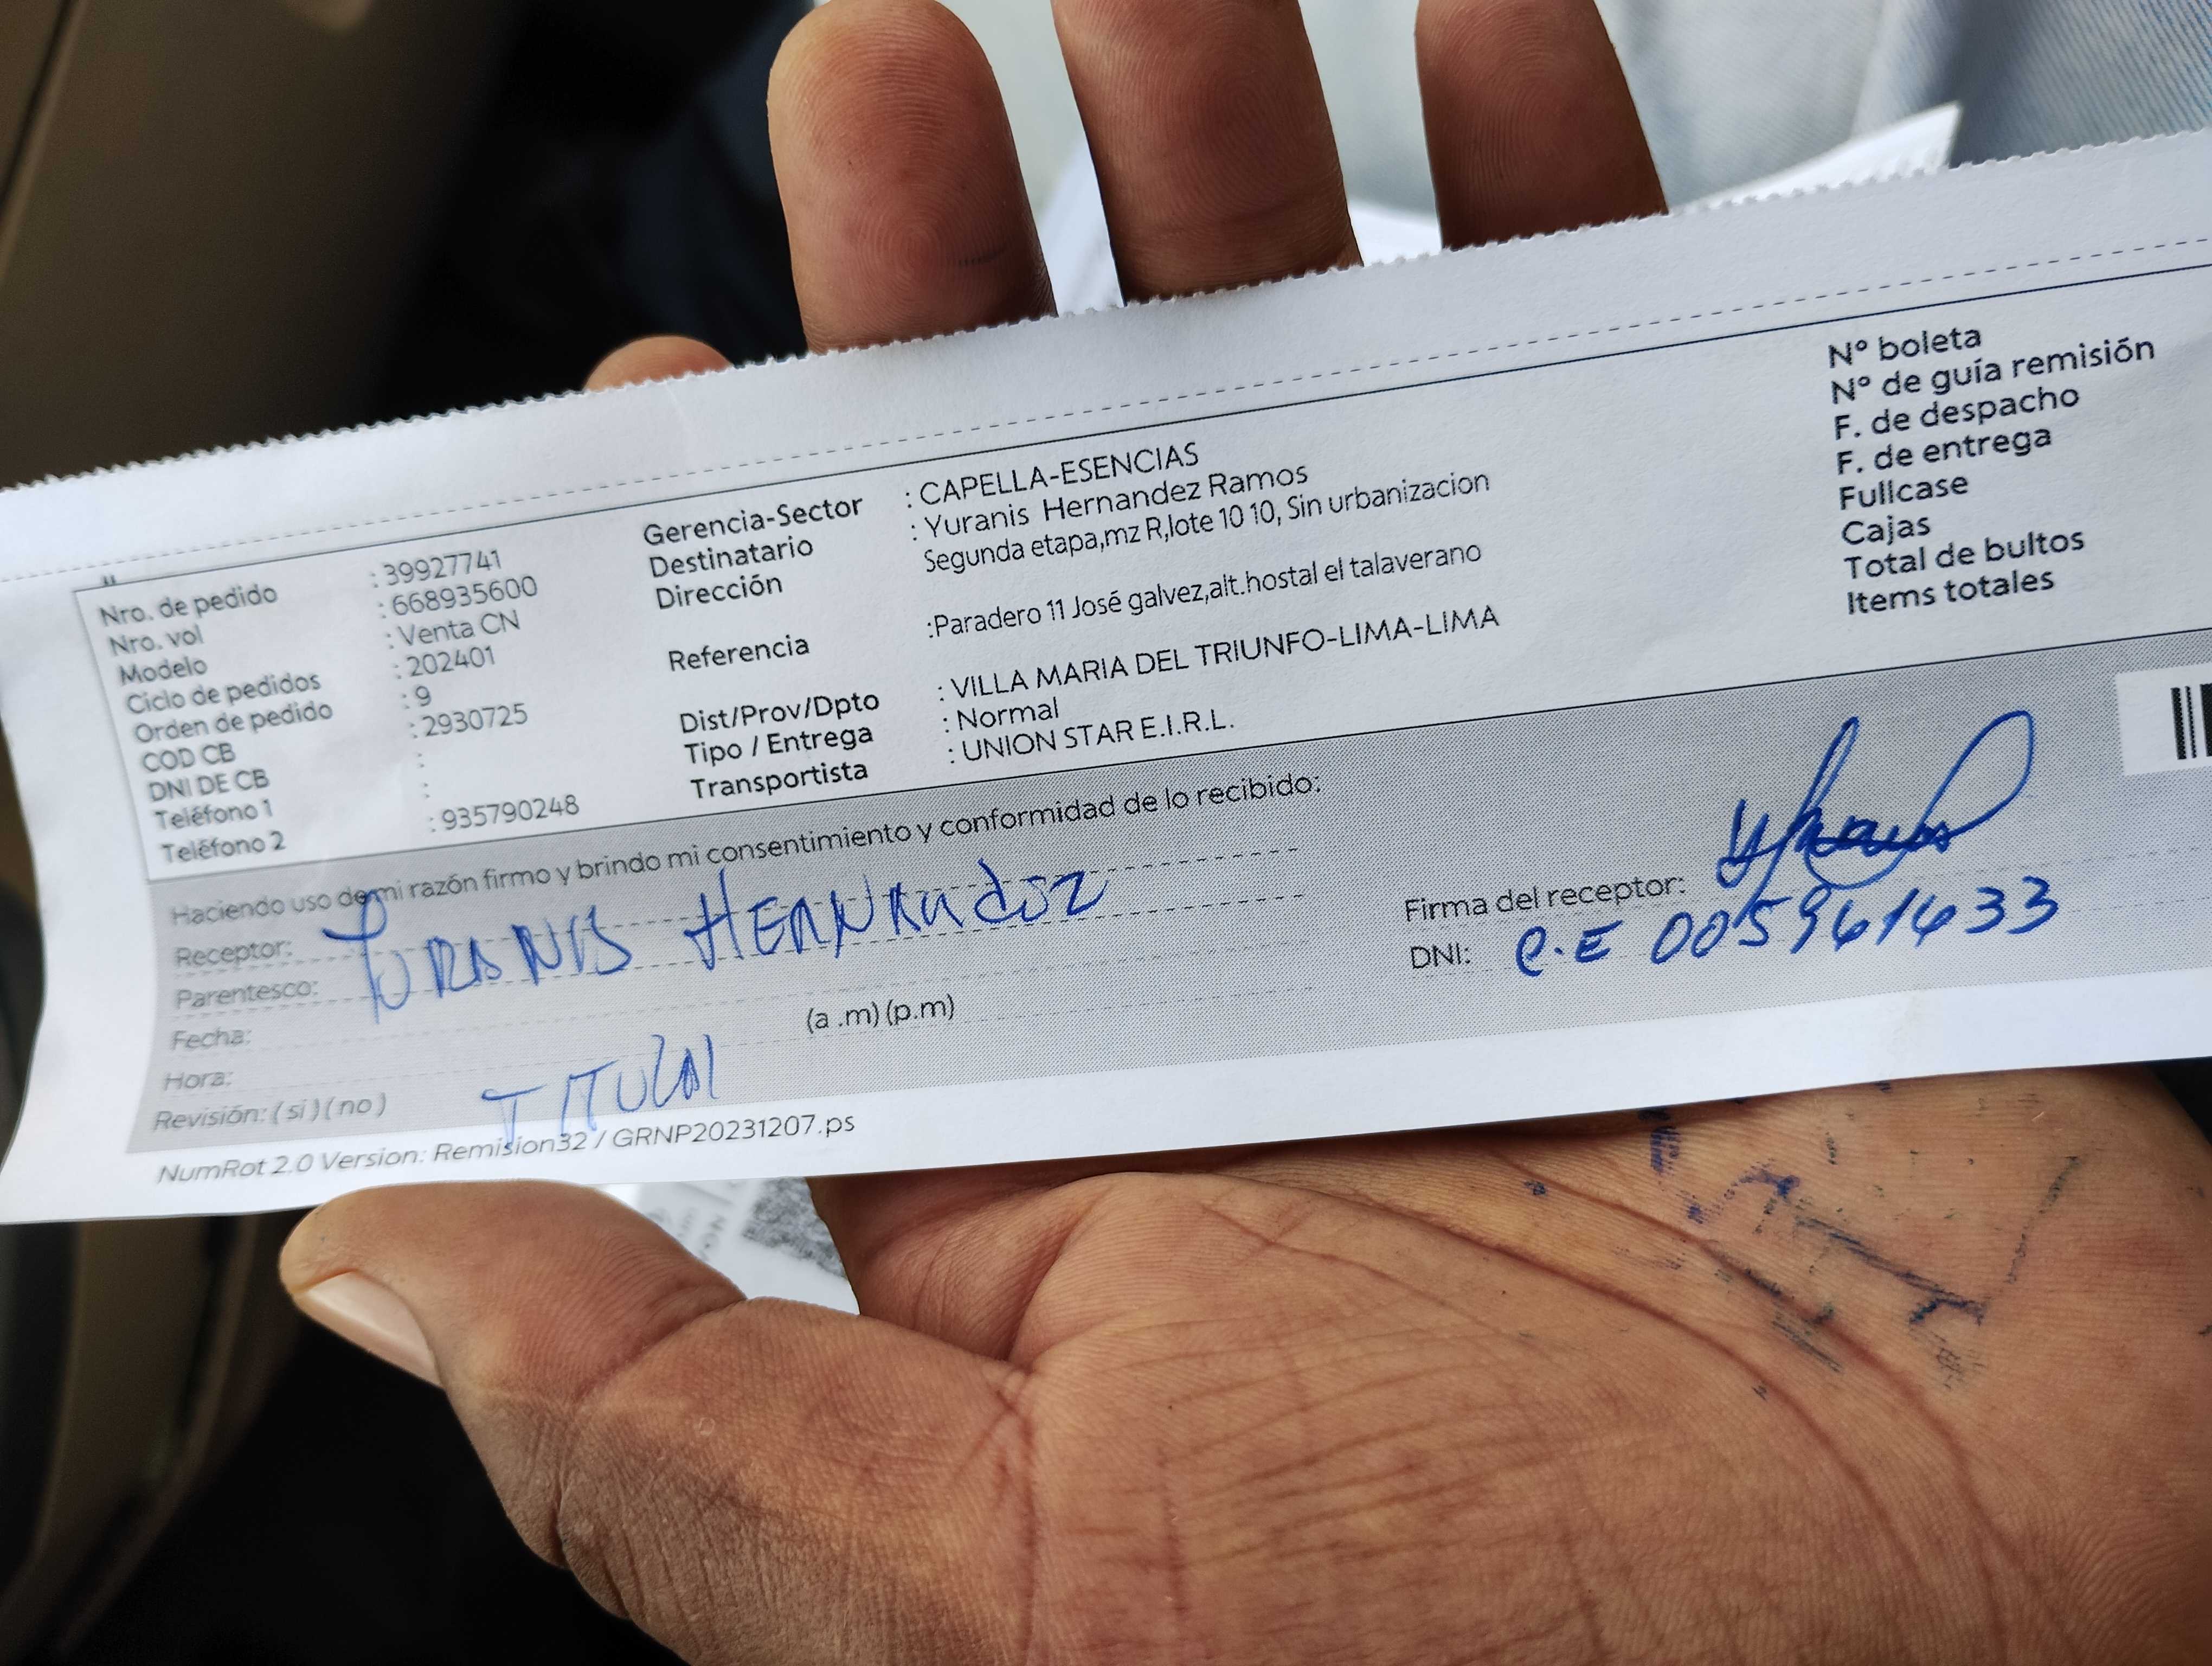 Nro. de pedido : 39927741
Nro. vol : 668935600
Modelo : Venta CN
Ciclo de pedidos : 202401
Orden de pedido : 9
COD CB : 2930725
DNI DE CB :
Teléfono 1 :
Teléfono 2 : 935790248
Gerencia-Sector : CAPELLA-ESENCIAS
Destinatario : Yuranis Hernandez Ramos
Dirección Segunda etapa,mz R,lote 10 10, Sin urbanizacion
Referencia :Paradero 11 José galvez,alt.hostal el talaverano
Dist/Prov/Dpto : VILLA MARIA DEL TRIUNFO-LIMA-LIMA
Tipo / Entrega : Normal
Transportista : UNION STAR E.I.R.L.
N° boleta
N° de guía remisión
F. de despacho
F. de entrega
Fullcase
Cajas
Total de bultos
Items totales
Haciendo uso de mi razón firmo y brindo mi consentimiento y conformidad de lo recibido:
Receptor: YURANIS HERNANdEZ
Parentesco:
Fecha:
Hora: (a .m) (p.m)
Revisión: ( si ) ( no ) TITULAR
Firma del receptor:
DNI: C.E
NumRot 2.0 Version: Remision32 / GRNP20231207.ps